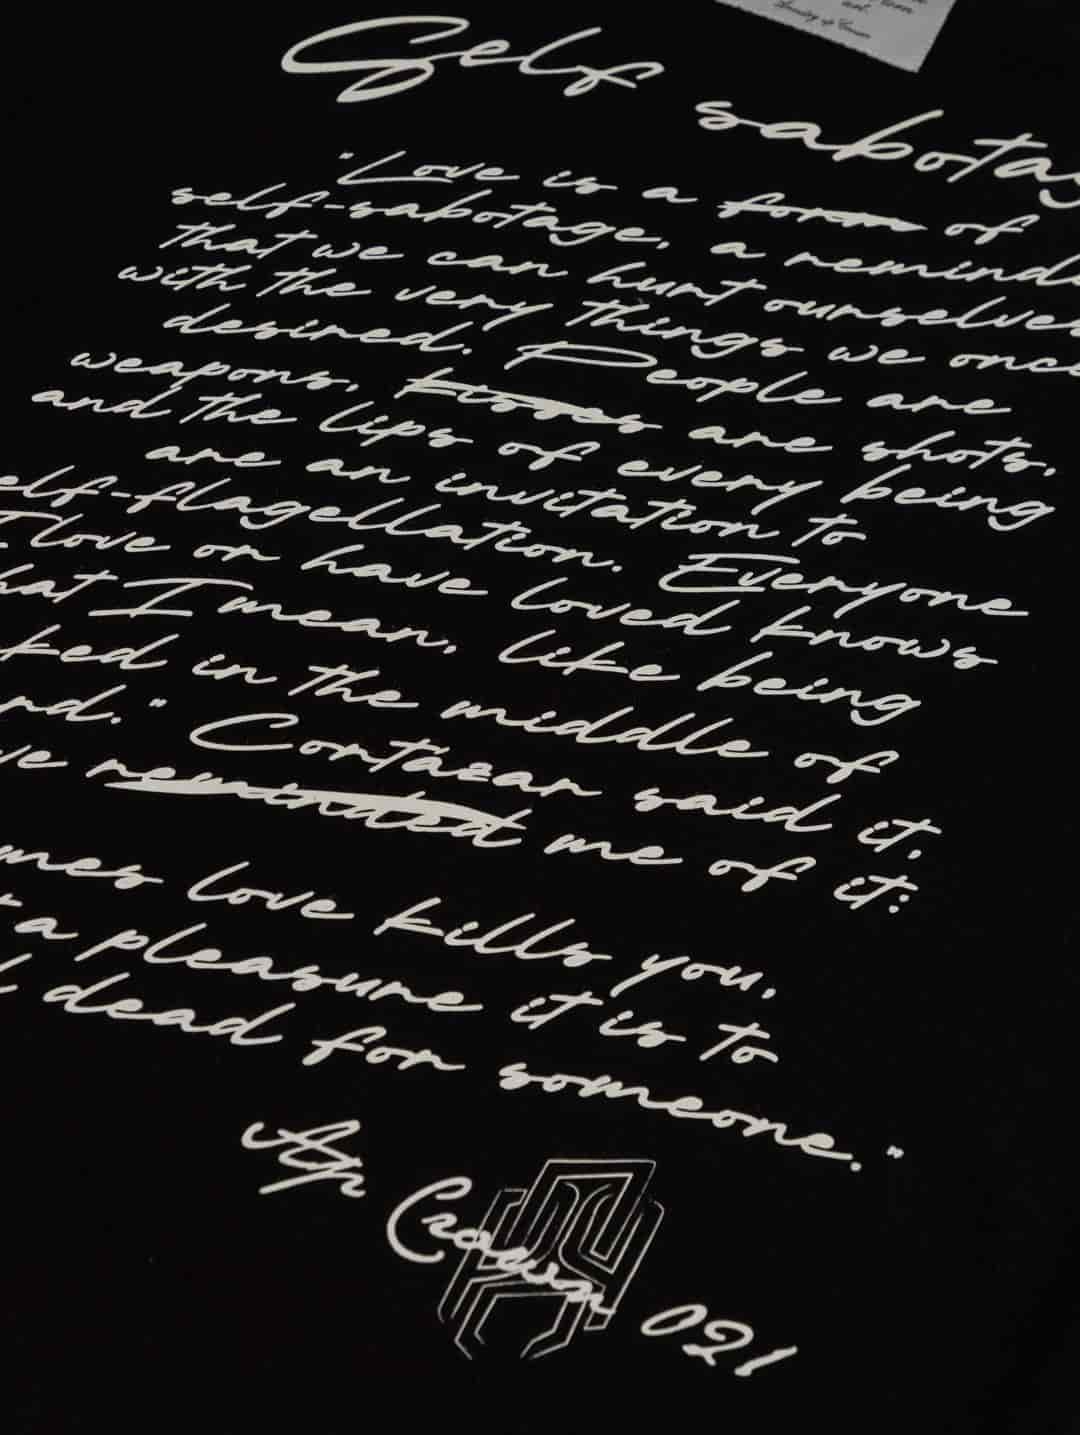 Self sabotag
"Love is a form of
self-sabotage, a reminde
that we can hurt ourselves
with the very things we once
desired. People are
weapons, kisses are shots,
and the lips of every being
are an invitation to
elf-flagellation. Everyone
I love or have loved knows
hat I mean, like being
ked in the middle of
nd." Cortazar said it,
ve reminded me of it:
mes love kills you,
a pleasure it is to
dead for someone."
Ap Crown 021